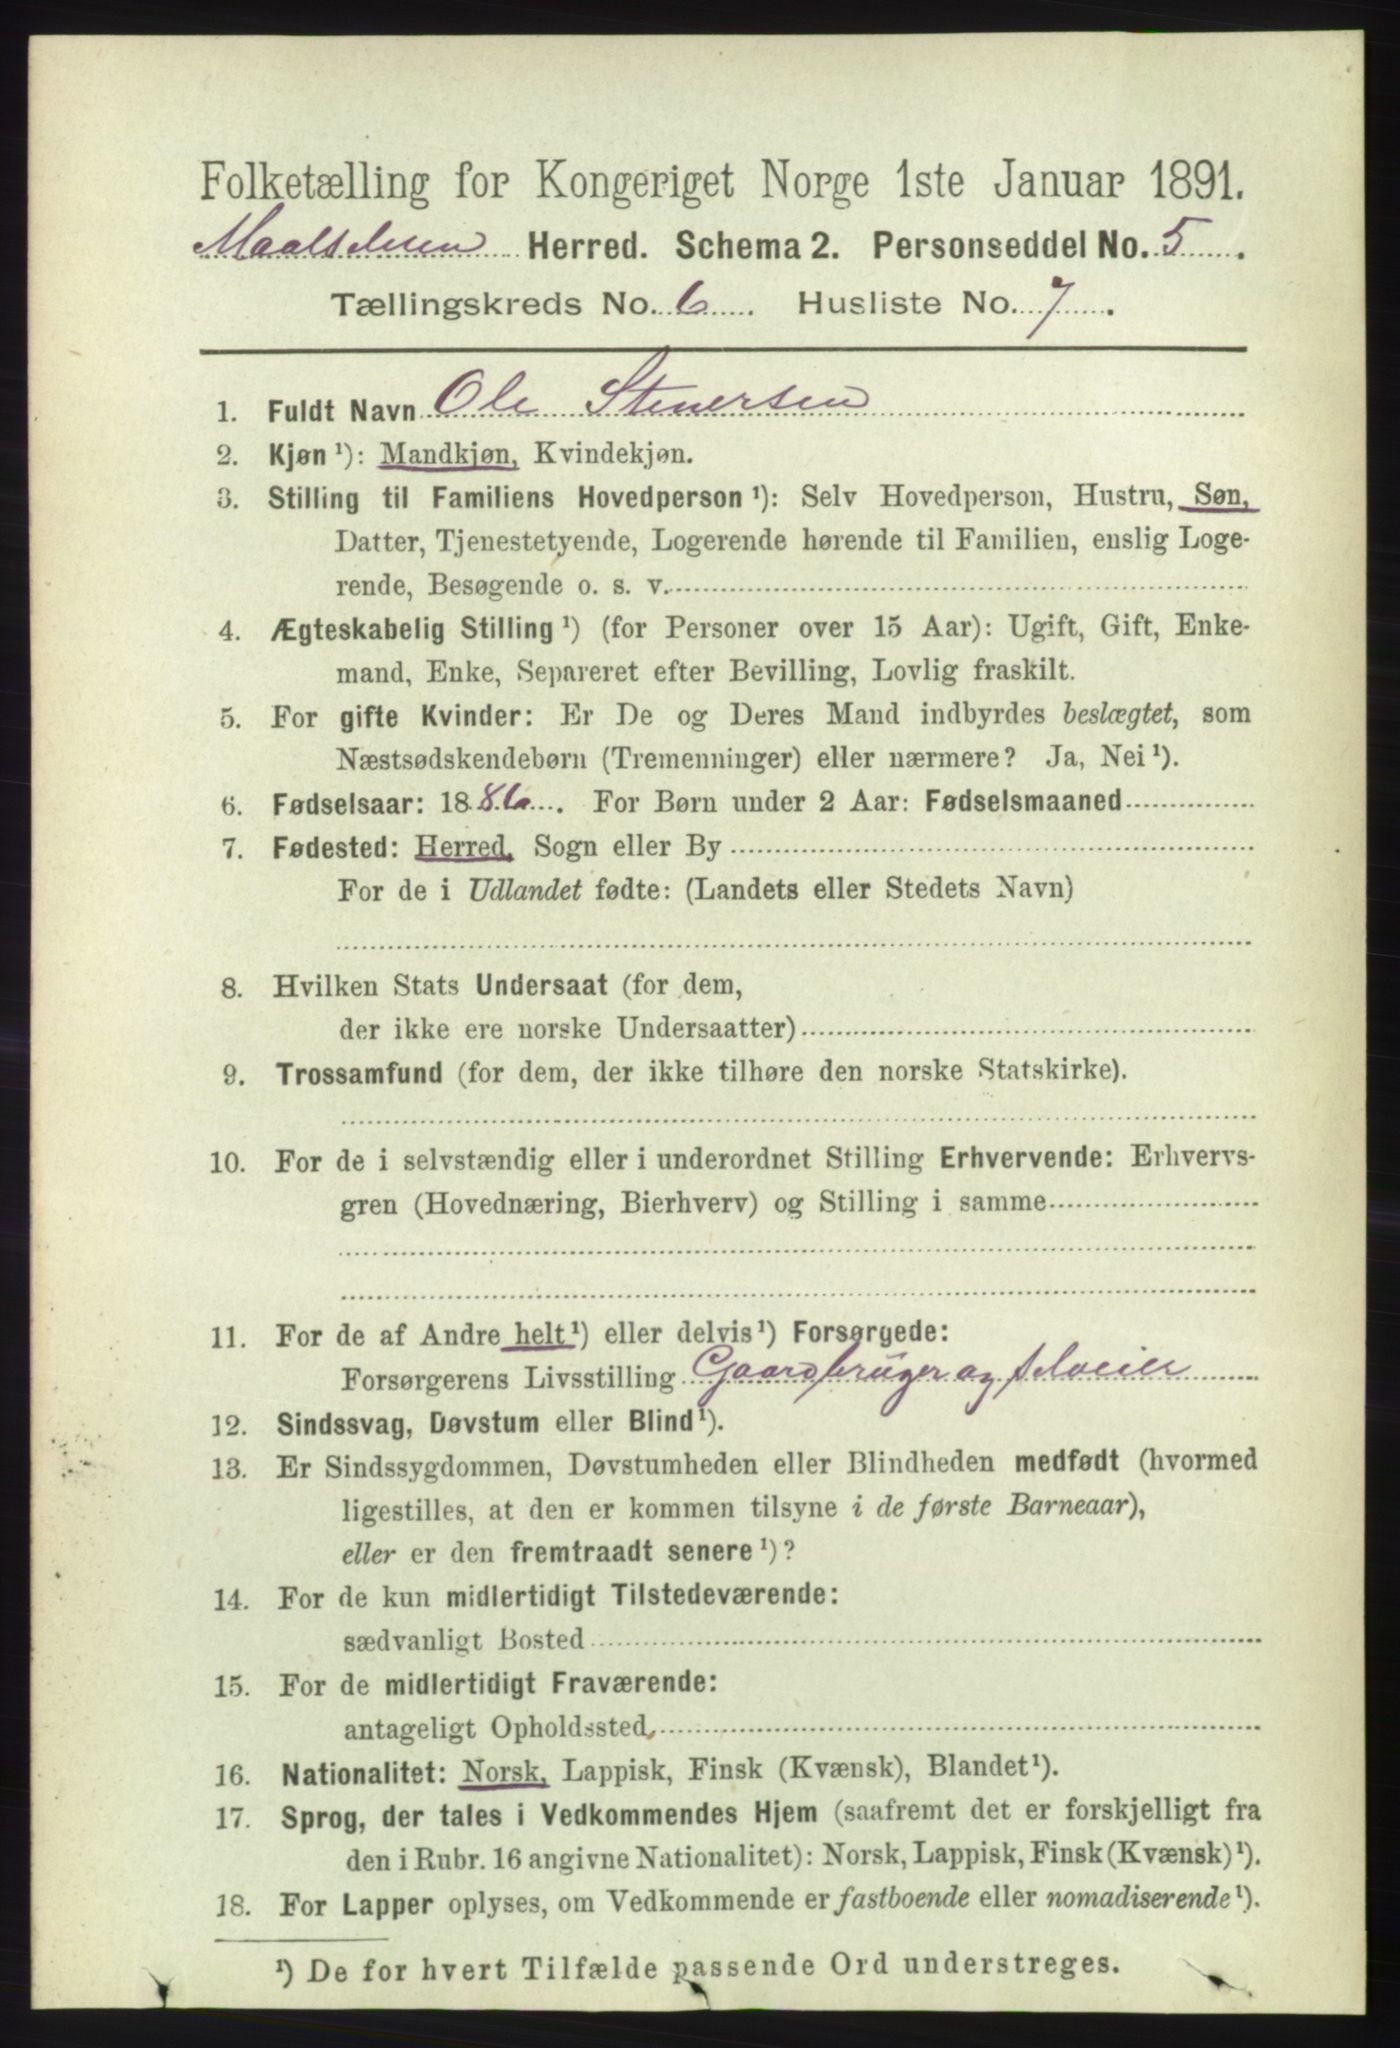 Folketælling for Kongeriget Norge 1ste Januar 1891.
Maalselven Herred. Schema 2. Personseddel No. 5.
Tællingskreds No. 6. Husliste No. 7.
1. Fuldt Navn Ole Stenersen
2. Kjøn ¹): Mandkjøn, Kvindekjøn.
3. Stilling til Familiens Hovedperson ¹): Selv Hovedperson, Hustru, Søn,
Datter, Tjenestetyende, Logerende hørende til Familien, enslig Loge-
rende, Besøgende o. s. v.
4. Ægteskabelig Stilling ¹) (for Personer over 15 Aar): Ugift, Gift, Enke-
mand, Enke, Separeret efter Bevilling, Lovlig fraskilt.
5. For gifte Kvinder: Er De og Deres Mand indbyrdes beslægtet, som
Næstsødskendebørn (Tremenninger) eller nærmere? Ja, Nei ¹).
6. Fødselsaar: 1886. For Børn under 2 Aar: Fødselsmaaned
7. Fødested: Herred, Sogn eller By
For de i Udlandet fødte: (Landets eller Stedets Navn)
8. Hvilken Stats Undersaat (for dem,
der ikke ere norske Undersaatter)
9. Trossamfund (for dem, der ikke tilhøre den norske Statskirke).
10. For de i selvstændig eller i underordnet Stilling Erhvervende: Erhvervs-
gren (Hovednæring, Bierhverv) og Stilling i samme
11. For de af Andre helt ¹) eller delvis ¹) Forsørgede:
Forsørgerens Livsstilling Gaardbruger og selveier
12. Sindssvag, Døvstum eller Blind ¹).
13. Er Sindssygdommen, Døvstumheden eller Blindheden medfødt (hvormed
ligestilles, at den er kommen tilsyne i de første Barneaar),
eller er den fremtraadt senere ¹)?
14. For de kun midlertidigt Tilstedeværende:
sædvanligt Bosted
15. For de midlertidigt Fraværende:
antageligt Opholdssted
16. Nationalitet: Norsk, Lappisk, Finsk (Kvænsk), Blandet ¹).
17. Sprog, der tales i Vedkommendes Hjem (saafremt det er forskjelligt fra
den i Rubr. 16 angivne Nationalitet): Norsk, Lappisk, Finsk (Kvænsk) ¹).
18. For Lapper oplyses, om Vedkommende er fastboende eller nomadiserende ¹).
¹) De for hvert Tilfælde passende Ord understreges.